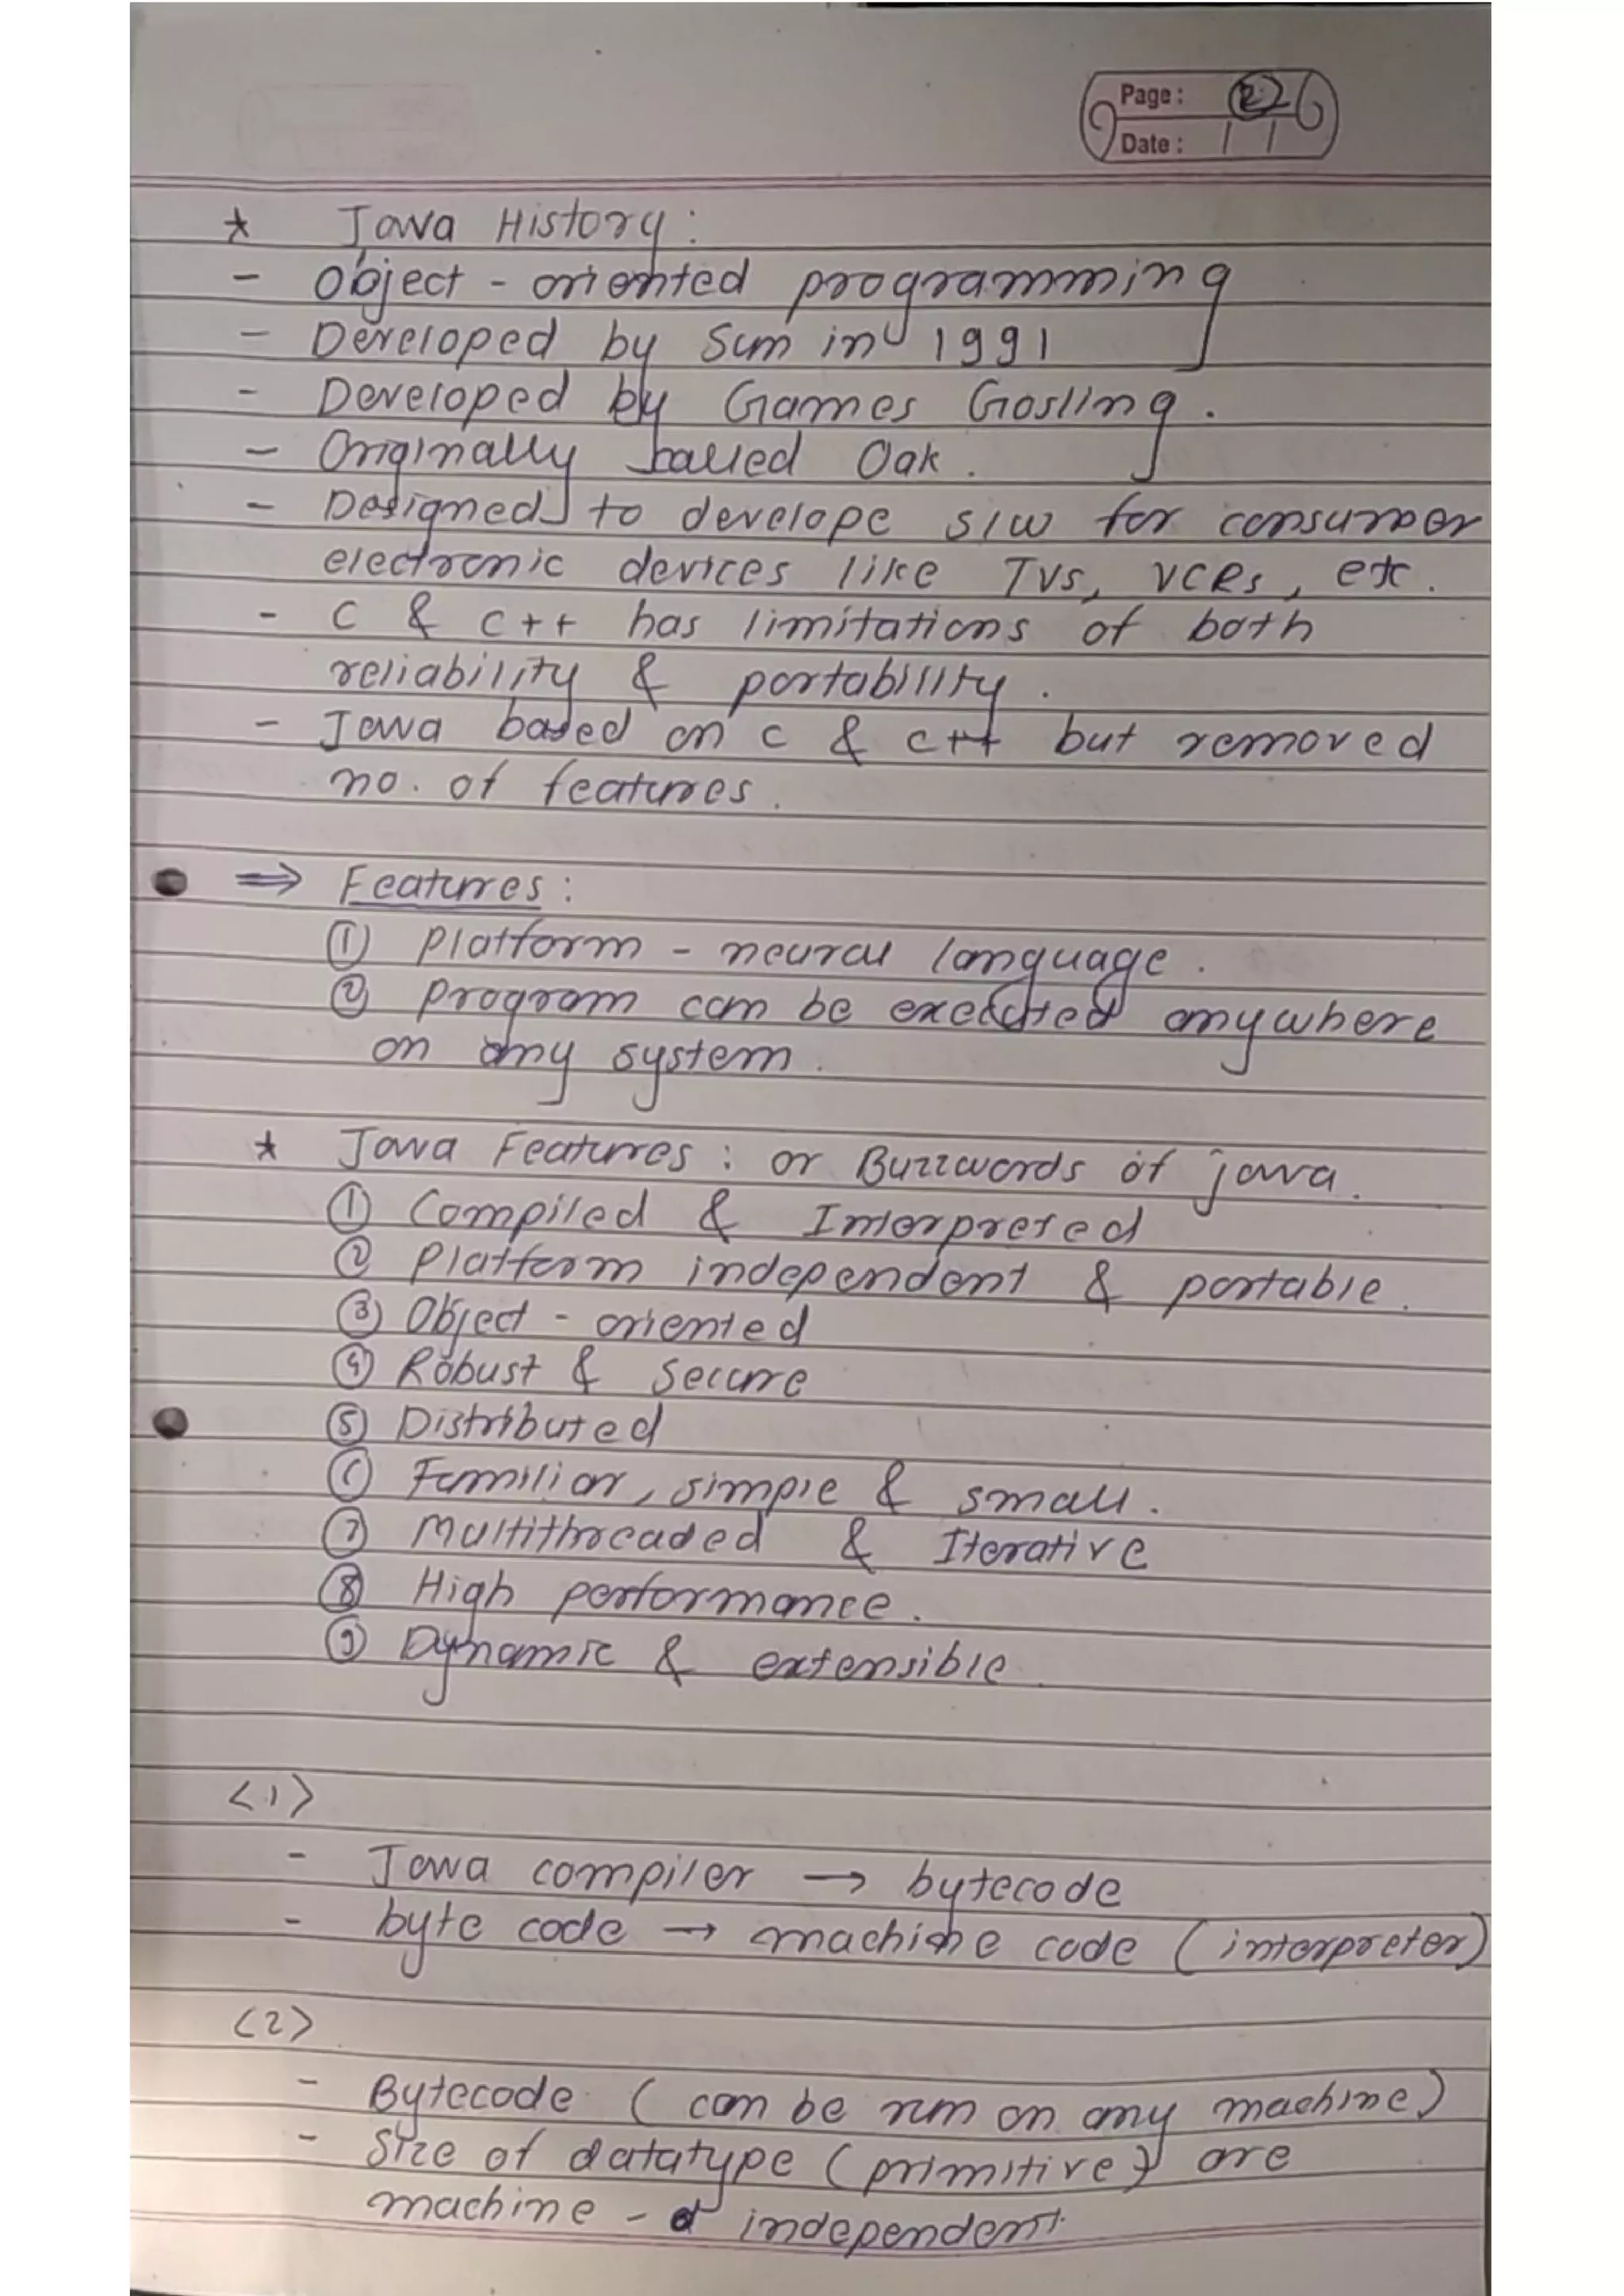 Page: 22
Date: / /
* Java History:
- Object-oriented programming
- Developed by Sun in 1991
- Developed by Games Gosling.
- Originally called Oak.
- Designed to develope s/w for consumer
electronic devices like TVs, VCRs, etc.
- C & C++ has limitations of both
reliability & portability.
- Java based on C & C++ but removed
no. of features.
⇒ Features:
① Platform - neural language.
② Program can be executed anywhere
on any system.
* Java Features: or Buzzwords of java.
① Compiled & Interpreted
② Platform independent & portable.
③ Object-oriented
④ Robust & Secure
⑤ Distributed
⑥ Familiar, simple & small.
⑦ Multithreaded & Iterative
⑧ High performance.
⑨ Dynamic & extensible.
<1>
- Java compiler → bytecode
- byte code → machine code (interpreter)
<2>
- Bytecode (can be run on any machine)
- Size of datatype (primitive) are
machine - independent.